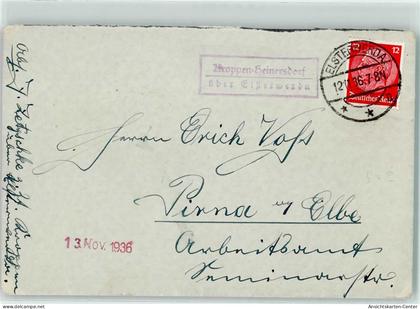 Kroppen-Heinersdorf
über Elsterwerda
ELSTERWERDA
12.11.36.7-8N
12
Deutsches Reich
Herrn Erich Voß
Pirna a/ Elbe
Arbeitsamt
Seminarstr.
13. Nov. 1936
Ansichtskarten-Center